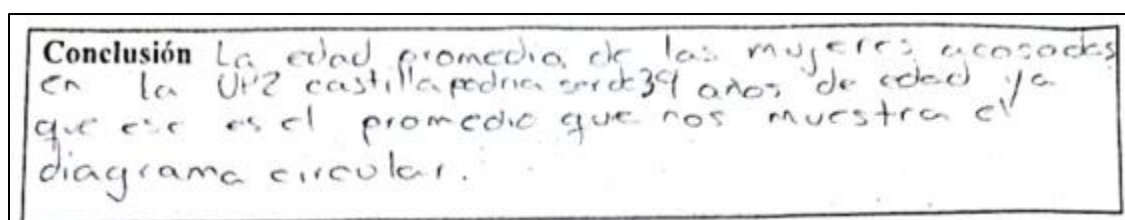 Conclusión La edad promedio de las mujeres acosadas
en la UPZ castilla podria ser de 39 años de edad ya
que ese es el promedio que nos muestra el
diagrama circular.